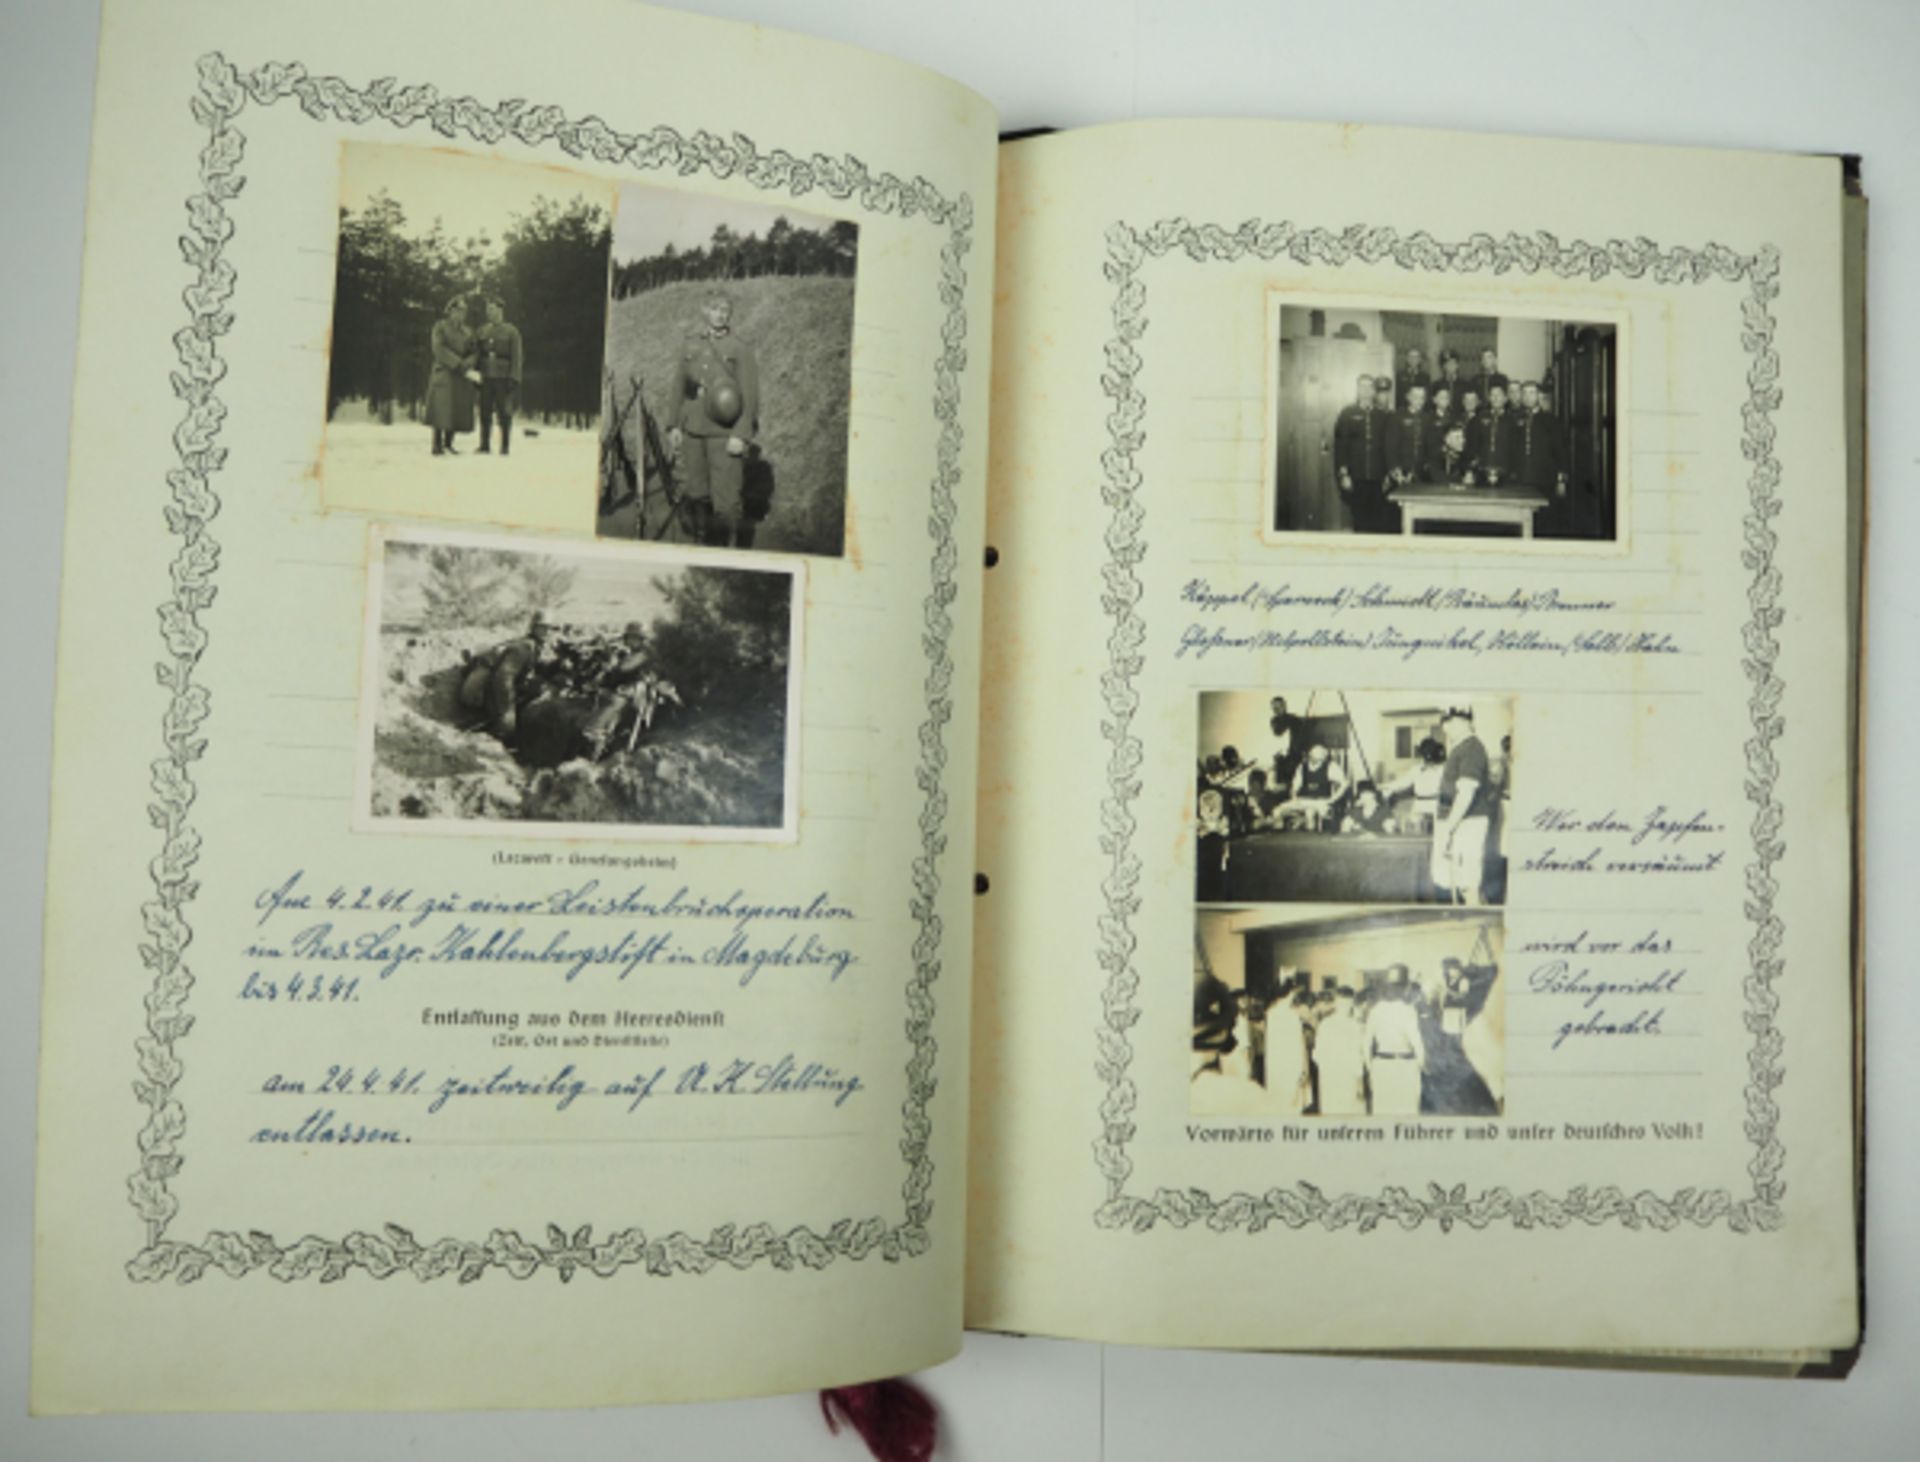 (Lazarett - Genesungsheim)
Am 4.2.41. zu einer Leistenbruchoperation
im Res. Lazr. Kahlenbergstift in Magdeburg
bis 4.3.41.
Entlassung aus dem Heeresdienst
(Zeit, Ort und Dienststelle)
am 24.4.41. zeitweilig auf U. K. Stellung
entlassen.
Käppel / Schmidt / Brenner
Jungnikel, / Hahn
Wer den Zapfen-
streich versäumt
wird vor das
gebracht.
Vorwärts für unseren Führer und unser deutsches Volk!